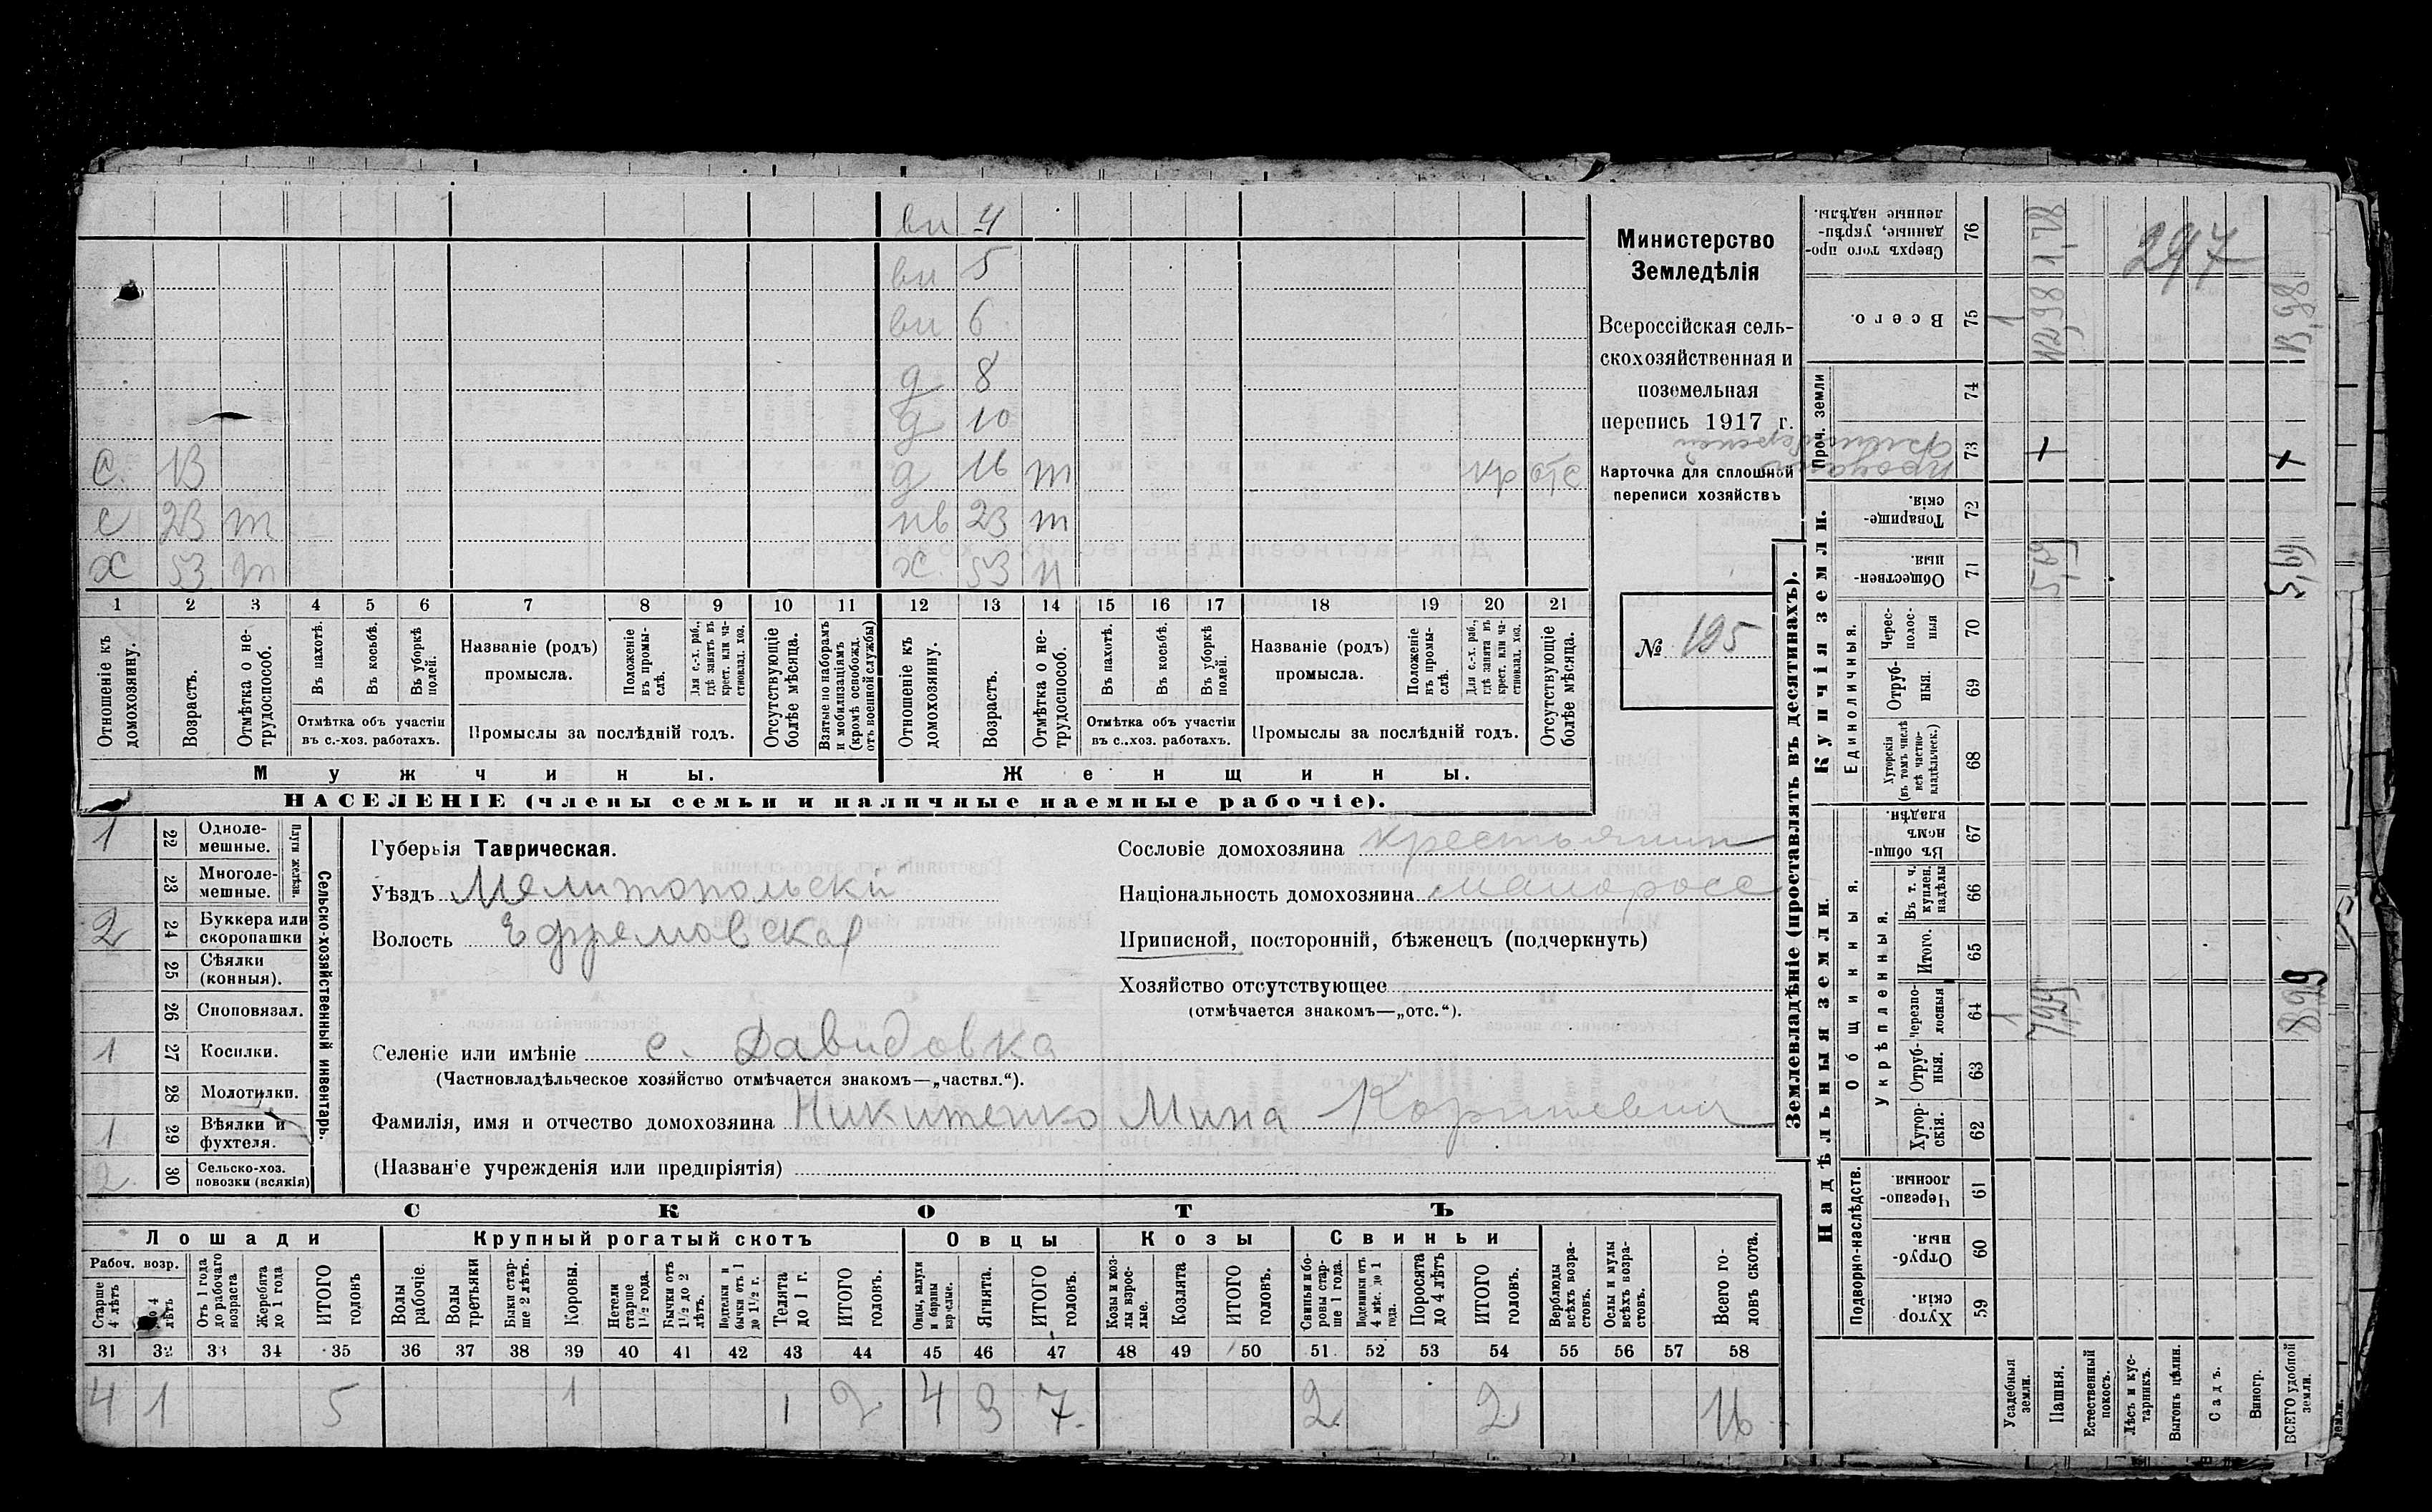 вн 4
вн 5
вн 6
д 8
д 10
с. 13 д 16 т кр отс
с 23 т нв 23 т
х 53 т х. 53 п
1 2 3 4 5 6 7 8 9 10 11 12 13 14 15 16 17 18 19 20 21
Отношеніе къ домохозяину.
Возрастъ.
Отмѣтка о нетрудоспособ.
Въ пахотѣ.
Въ косьбѣ.
Въ уборкѣ полей.
Отмѣтка объ участіи въ с.-хоз. работахъ.
Названіе (родъ) промысла.
Положеніе въ промыслѣ.
Для с.-х. раб., гдѣ занятъ въ крест. или частновлад. хоз.
Промыслы за послѣдній годъ.
Отсутствующіе болѣе мѣсяца.
Взятые по наборамъ и мобилизаціямъ (кромѣ освобожд. отъ военной службы)
Отношеніе къ домохозяину.
Возрастъ.
Отмѣтка о нетрудоспособ.
Въ пахотѣ.
Въ косьбѣ.
Въ уборкѣ полей.
Отмѣтка объ участіи въ с.-хоз. работахъ.
Названіе (родъ) промысла.
Положеніе въ промыслѣ.
Для с.-х. раб., гдѣ занята въ крест. или частновлад. хоз.
Промыслы за послѣдній годъ.
Отсутствующіе болѣе мѣсяца.
Мужчины.
Женщины.
НАСЕЛЕНІЕ (члены семьи и наличные наемные рабочіе).
Министерство
Земледѣлія
Всероссійская сель-
скохозяйственная и
поземельная
перепись 1917 г.
Карточка для сплошной
переписи хозяйствъ
№ 195
1 22 Одноле-мешные.
23 Многоле-мешные.
Плуги желѣзн.
2 24 Буккера или скоропашки
25 Сѣялки (конныя).
26 Сноповязал.
1 27 Косилки.
28 Молотилки.
1 29 Вѣялки и фухтеля.
2 30 Сельско-хоз. повозки (всякія)
Сельско-хозяйственный инвентарь.
Губернія Таврическая.
Уѣздъ Мелитопольскій
Волость Ефремовская
Сословіе домохозяина крестьянин
Національность домохозяина малоросс
Приписной, посторонній, бѣженецъ (подчеркнуть)
Хозяйство отсутствующее
(отмѣчается знакомъ—„отс.“).
Селеніе или имѣніе с. Давидовка
(Частновладѣльческое хозяйство отмѣчается знакомъ—„частвл.“).
Фамилія, имя и отчество домохозяина Никитенко Мина Корниевич
(Названіе учрежденія или предпріятія)
СКОТЪ
Лошади Крупный рогатый скотъ Овцы Козы Свиньи
Рабоч. возр.
Старше 4 лѣтъ
До 4 лѣтъ
Отъ 1 года до рабочаго возраста
Жеребята до 1 года
ИТОГО головъ
Волы рабочіе.
Волы третьяки
Быки старше 2 лѣтъ.
Коровы.
Нетели старше 1½ года.
Бычки отъ 1½ до 2 лѣтъ.
Подтелки и бычки отъ 1 до 1½ г.
Телята до 1 г.
ИТОГО головъ.
Овцы, валухи и бараны взрослые.
Ягнята.
ИТОГО головъ.
Козы и козлы взрослые.
Козлята
ИТОГО головъ.
Свиньи и боровы старше 1 года.
Подсвинки отъ 4 мѣс. до 1 года.
Поросята до 4 лѣтъ
ИТОГО головъ.
Верблюды всѣхъ возрастовъ.
Ослы и мулы всѣхъ возрастовъ.
Всего головъ скота.
31 32 33 34 35 36 37 38 39 40 41 42 43 44 45 46 47 48 49 50 51 52 53 54 55 56 57 58
4 1 5 1 1 2 4 3 7 2 2 16
Землевладѣніе (проставлять въ десятинахъ).
Надѣльныя земли.
Купчія земли.
Проч. земли
Подворно-наслѣдств.
Общинныя.
Укрѣпленныя.
Единоличныя.
Хуторскія. 59
Отрубныя. 60
Черезполосныя 61
Хуторскія. 62
Отрубныя. 63
Черезполосныя 64 1 7,29 8,29
Итого. 65
Въ т. ч. куплен. надѣлы 66
Въ общинномъ владѣн. 67
Хуторскія (въ томъ числѣ всѣ частновладѣльческ.) 68
Отрубныя. 69
Чересполосныя 70
Общественныя. 71 5,69 5,69
Товарищескія. 72
73 + +
74
Всего. 75 1 12,98 13,98
Сверхъ того проданные, укрѣпленные надѣлы. 76 1,78
297
Усадебныя земли.
Пашня.
Естественный покосъ.
Лѣсъ и кустарникъ.
Выгонъ цѣлин.
Садъ.
Виногр.
ВСЕГО удобной земли.